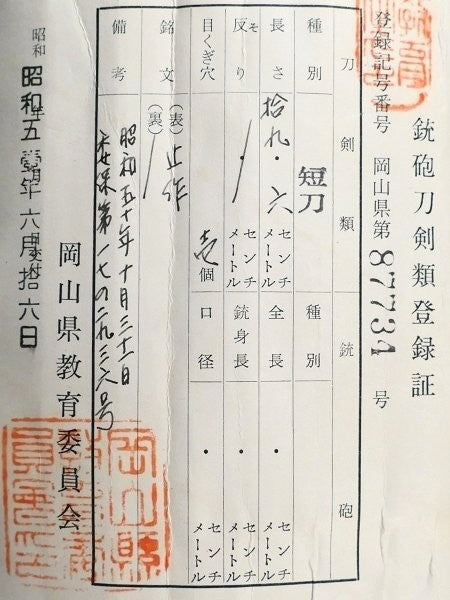 銃砲刀剣類登録証
登録記号番号 岡山県第 87731 号
刀剣類 銃砲
種別 短刀 種別
長さ 拾九・六 センチメートル 全長 ・ センチメートル
反り そ ・ センチメートル 銃身長 ・ センチメートル
目くぎ穴 壱個 口径 ・ センチメートル
銘文 (表)
(裏)
備考 昭和五十年十月三十一日
委保第一七の二九三六号
昭和五
年六月拾六日
岡山県教育委員会